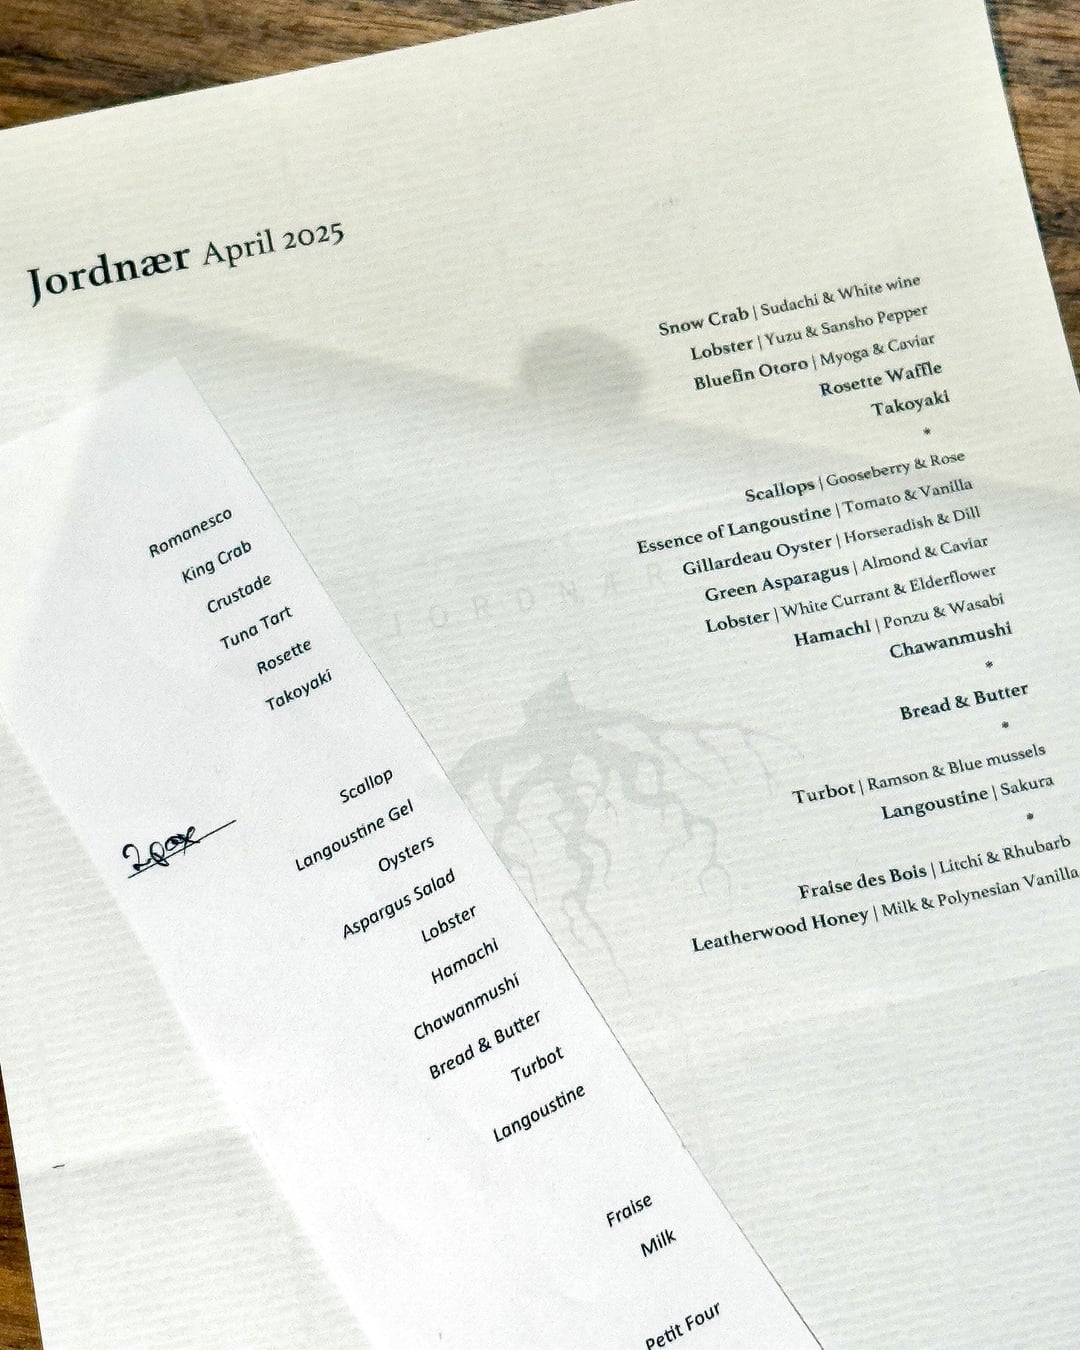 Jordnær April 2025
Snow Crab | Sudachi & White wine
Lobster | Yuzu & Sansho Pepper
Bluefin Otoro | Myoga & Caviar
Rosette Waffle
Takoyaki
*
Scallops | Gooseberry & Rose
Essence of Langoustine | Tomato & Vanilla
Gillardeau Oyster | Horseradish & Dill
Green Asparagus | Almond & Caviar
Lobster | White Currant & Elderflower
Hamachi | Ponzu & Wasabi
Chawanmushi
*
Bread & Butter
*
Turbot | Ramson & Blue mussels
Langoustine | Sakura
*
Fraise des Bois | Litchi & Rhubarb
Leatherwood Honey | Milk & Polynesian Vanilla
JORDNÆR
Romanesco
King Crab
Crustade
Tuna Tart
Rosette
Takoyaki
Scallop
Langoustine Gel
Oysters
Aspargus Salad
Lobster
Hamachi
Chawanmushi
Bread & Butter
Turbot
Langoustine
Fraise
Milk
Petit Four